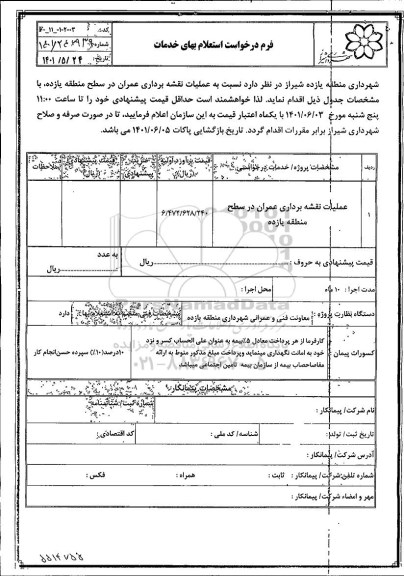 فرم درخواست استعلام بهای خدمات
کد: ۶۰_۱۱_۰۱-۲۰۰۲
شماره:
۱۴۰۱/۵/۲۴
شهرداری منطقه یازده شیراز در نظر دارد نسبت به عملیات نقشه برداری عمران در سطح منطقه یازده، با
مشخصات جدول ذیل اقدام نماید. لذا خواهشمند است حداقل قیمت پیشنهادی خود را تا ساعت ۱۱:۰۰
پنج شنبه مورخ ۱۴۰۱/۰۶/۰۳ با یکماه اعتبار قیمت به این سازمان اعلام فرمایید، تا در صورت صرفه و صلاح
شهرداری شیراز برابر مقررات اقدام گردد. تاریخ بازگشایی پاکات ۱۴۰۱/۰۶/۰۵ می باشد.
ردیف مشخصات پروژه/ خدمات درخواستی قیمت برآورد اولیه (ریال) پیشنهادی قیمت پیشنهادی (ریال) ملاحظات
۱ عملیات نقشه برداری عمران در سطح منطقه یازده ۶/۴۷۲/۶۲۸/۲۴۰
قیمت پیشنهادی به حروف: ریال به عدد ریال
مدت اجرا: ۱۰ ماه محل اجرا:
دستگاه نظارت پروژه: معاونت فنی و عمرانی شهرداری منطقه یازده دارد
کسورات پیمان: کارفرما از هر پرداخت معادل ۵٪بیمه به عنوان علی الحساب کسر و نزد
خود به امانت نگهداری مینماید وپرداخت مبلغ مذکور منوط به ارائه
مفاصاحساب بیمه از سازمان بیمه تامین اجتماعی میباشد
۱۰درصد(۱۰٪) سپرده حسن‌انجام کار
مشخصات پیمانکار:
نام شرکت/ پیمانکار: شماره ثبت/ شناسنامه:
تاریخ ثبت/ تولد: شناسه/ کد ملی: کد اقتصادی:
آدرس شرکت/ پیمانکار:
شماره تلفن شرکت/ پیمانکار: ثابت: همراه: فکس:
مهر و امضاء شرکت/ پیمانکار: